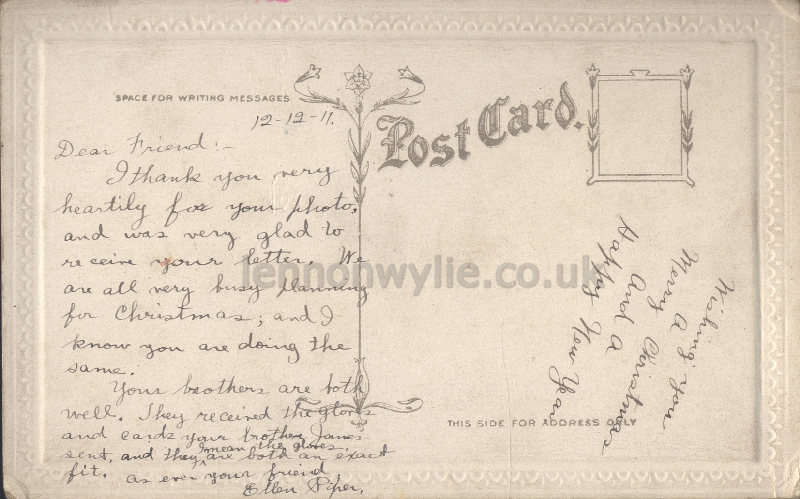 SPACE FOR WRITING MESSAGES
12-12-11.
Dear Friend:-
I thank you very
heartily for your photo,
and was very glad to
receive your letter. We
are all very busy planning
for Christmas; and I
know you are doing the
same.
Your brothers are both
well. They received the gloves
and cards your brother James
sent, and they are both an exact
I mean the gloves,
fit. as ever your friend
Ellen Piper.
Post Card.
Wishing you
A
Merry Christmas
And a
Happy New Year
THIS SIDE FOR ADDRESS ONLY
lennonwylie.co.uk